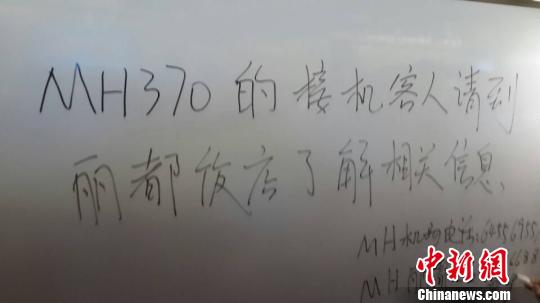 MH370的接机客人请到
丽都饭店了解相关信息、
MH机场电话:64556955
MH
中新网
Chinanews.com